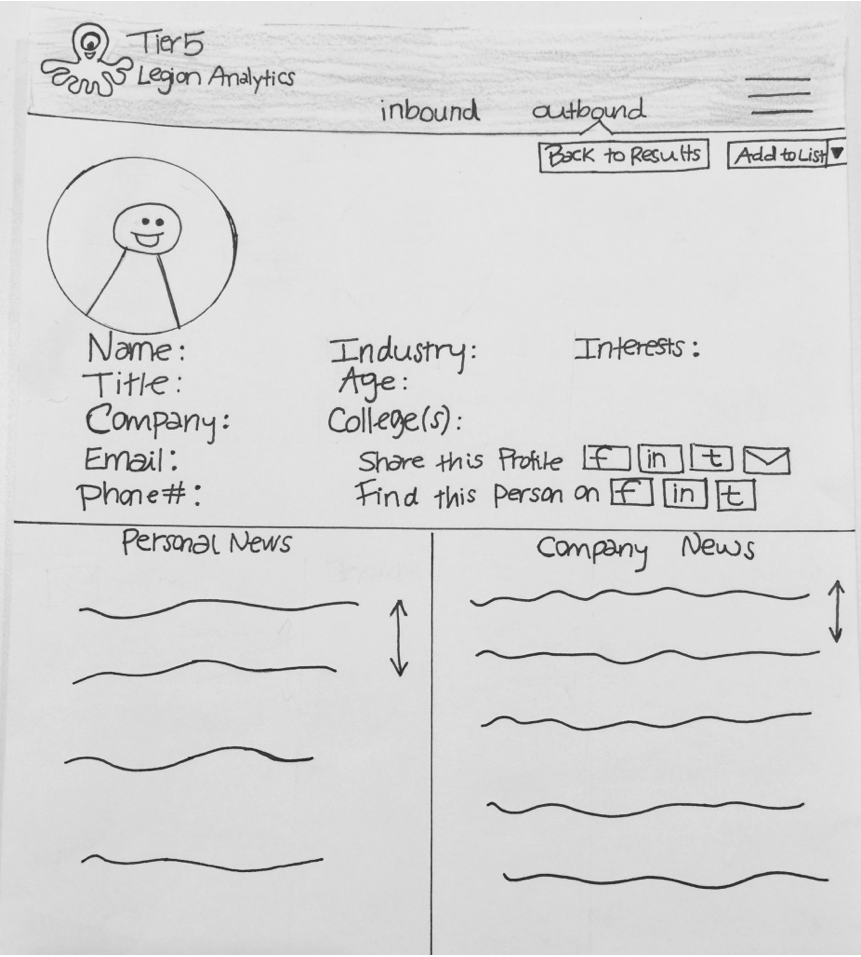 Tier5
Legion Analytics
inbound outbound
Back to Results Add to List
Name: Industry: Interests:
Title: Age:
Company: College(s):
Email: Share this Profile f in t
Phone#: Find this person on f in t
Personal News Company News